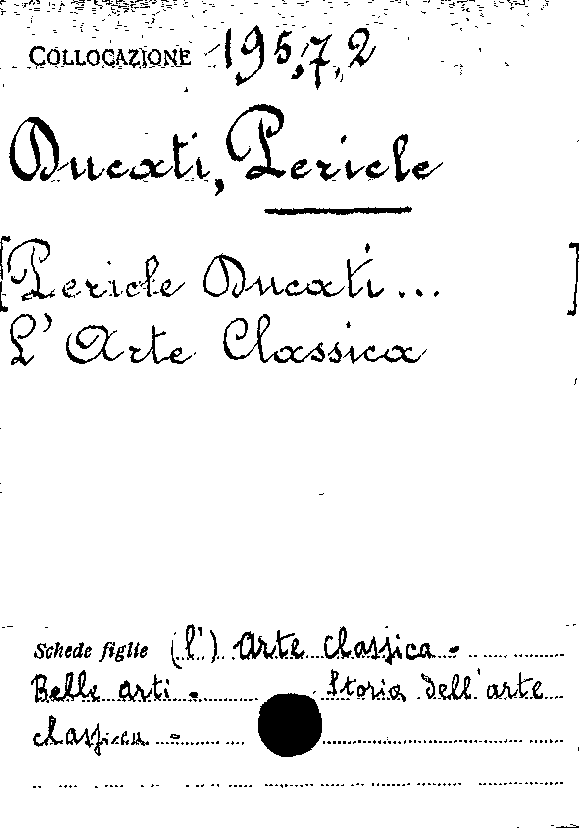 COLLOCAZIONE 195,7,2
Ducati, Pericle
[Pericle Ducati... ]
L'Arte Classica
Schede figlie (l') Arte classica -
Belle arti - Storia dell'arte
classica -